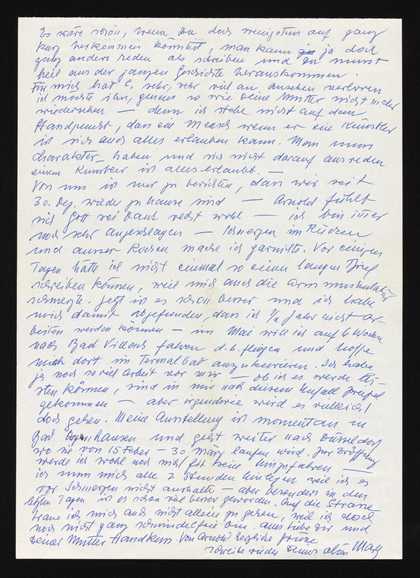 Es wäre schön, wenn Du doch wenigstens auf ganz
kurz herkommen könntest, man kann ja doch
ganz anders reden als schreiben und Du musst
heil aus der ganzen Geschichte herauskommen.
Für mich hat E. sehr, sehr viel an ansehen verloren
ich möchte ihn, genau so wie Deine Mutter nicht mehr
wiedersehen — denn ich stehe nicht auf dem
Standpunkt, dass ein Mensch wenn er ein Künstler
ist sich auch alles erlauben kann. Man muss
Charakter haben und sich nicht darauf ausreden
einem Künstler ist alles erlaubt —
Von uns ist nur zu berichten, dass wir seit
30. Dez. wieder zu Hause sind — Arnold fühlt
sich Gott sei Dank recht wohl — ich bin immer
noch sehr angeschlagen — Schmerzen im Rücken
und ausser Kochen mache ich garnichts. Vor einigen
Tagen hätte ich nicht einmal so einen langen Brief
schreiben können, weil mich auch die Armmuskulatur
schmerzte. Jetzt ist es schon besser und ich habe
mich damit abgefunden, dass ich ½ Jahr nicht ar-
beiten werde können — im Mai will ich auf 6 Wochen
nach Bad Vilbel fahren d.h. fliegen und hoffe
mich dort im Termalbad auszukurieren. Ich habe
ja noch so viel Arbeit vor mir — ob ich es werde lei-
sten können, sind in mir nach diesem Unfall Zweifel
gekommen — aber irgendwie wird es vielleicht
doch gehen. Meine Ausstellung ist momentan in
Bad Oeynhausen und geht weiter nach Düsseldorf
wo sie von 15 Feber – 30 März laufen wird. Zur Eröffnung
werde ich wohl noch nicht hin fahren —
ich muss mich alle 2 Stunden hinlegen weil ich es
vor Schmerzen nicht aushalte — aber besonders in den
letzten Tagen ist es schon viel besser geworden. Auf die Strasse
traue ich mich auch nicht allein zu gehen, weil ich
noch nicht ganz schwindelfrei bin. Alles Liebe Dir und
Deiner Mutter Handkuss von Arnold herzliche Grüsse
schreibe wieder Deiner alten